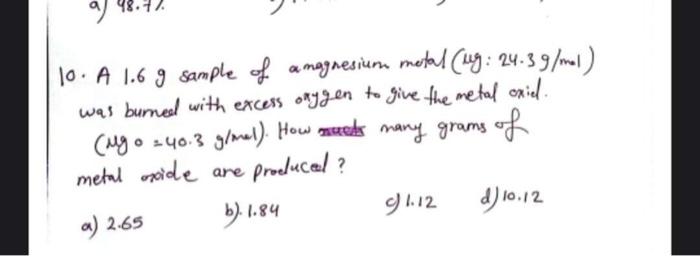 a) 48.7%
10. A 1.6 g sample of a magnesium metal (Mg: 24.3 g/mol)
was burned with excess oxygen to give the metal oxid.
(Mgo = 40.3 g/mol). How many grams of
metal oxide are produced?
a) 2.65 b). 1.84 c) 1.12 d) 10.12